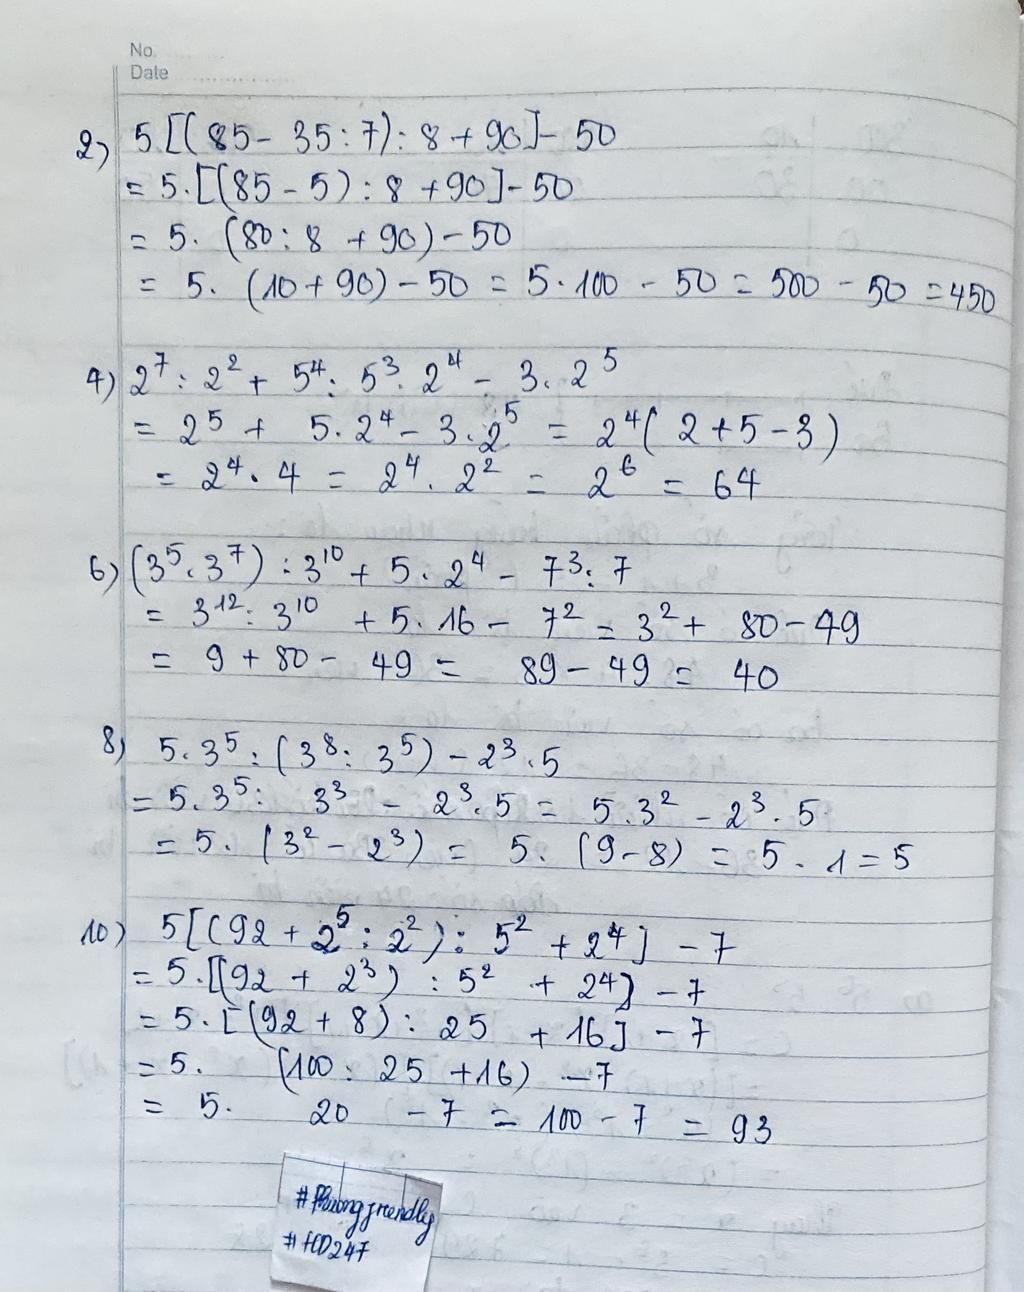 No.
Date
2) 5.[(85 - 35 : 7) : 8 + 90] - 50
= 5.[(85 - 5) : 8 + 90] - 50
= 5. (80 : 8 + 90) - 50
= 5. (10 + 90) - 50 = 5.100 - 50 = 500 - 50 = 450
4) 2⁷ : 2² + 5⁴ : 5³. 2⁴ - 3. 2⁵
= 2⁵ + 5. 2⁴ - 3. 2⁵ = 2⁴( 2 + 5 - 3)
= 2⁴. 4 = 2⁴. 2² = 2⁶ = 64
6) (3⁵. 3⁷) : 3¹⁰ + 5. 2⁴ - 7³ : 7
= 3¹² : 3¹⁰ + 5. 16 - 7² = 3² + 80 - 49
= 9 + 80 - 49 = 89 - 49 = 40
8) 5. 3⁵ : (3⁸ : 3⁵) - 2³. 5
= 5. 3⁵ : 3³ - 2³. 5 = 5. 3² - 2³. 5
= 5. (3² - 2³) = 5. (9 - 8) = 5. 1 = 5
10) 5[(92 + 2⁵ : 2²) : 5² + 2⁴] - 7
= 5.[(92 + 2³) : 5² + 24] - 7
= 5. [(92 + 8) : 25 + 16] - 7
= 5. (100 : 25 + 16) - 7
= 5. 20 - 7 = 100 - 7 = 93
#Phuongfriendly
#HD247